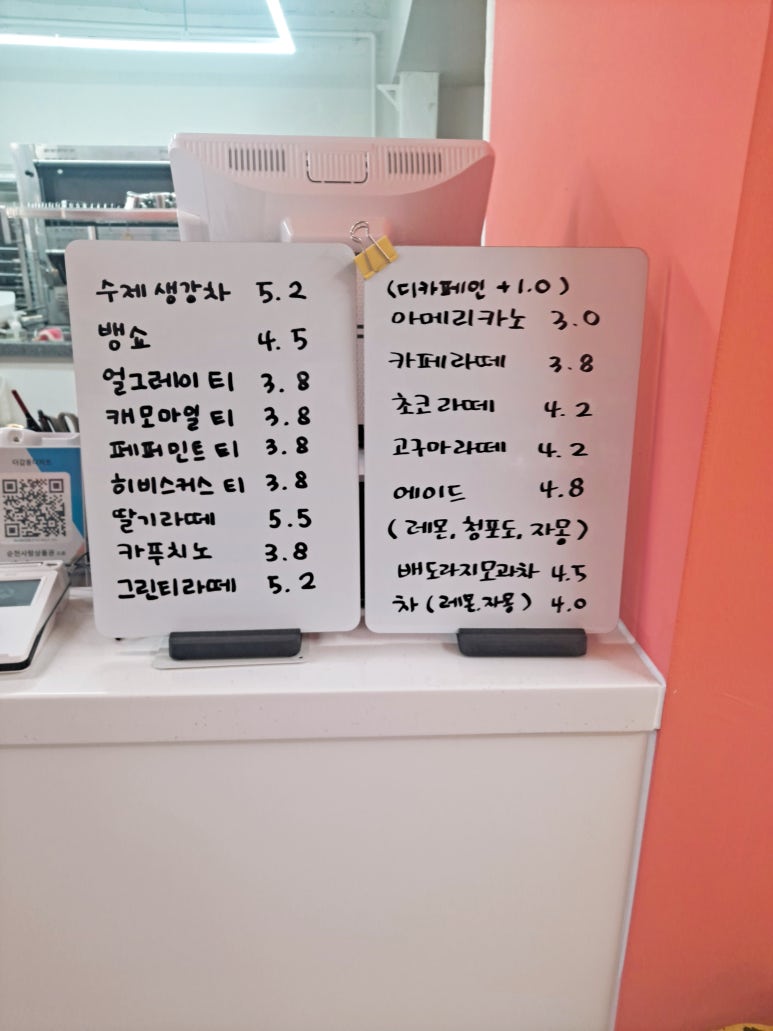 수제생강차 5.2
뱅쇼 4.5
얼그레이 티 3.8
캐모마일 티 3.8
페퍼민트 티 3.8
히비스커스 티 3.8
딸기라떼 5.5
카푸치노 3.8
그린티라떼 5.2
(디카페인 +1.0)
아메리카노 3.0
카페라떼 3.8
초코라떼 4.2
고구마라떼 4.2
에이드 4.8
(레몬, 청포도, 자몽)
배도라지모과차 4.5
차 (레몬.자몽) 4.0
순천사랑상품권